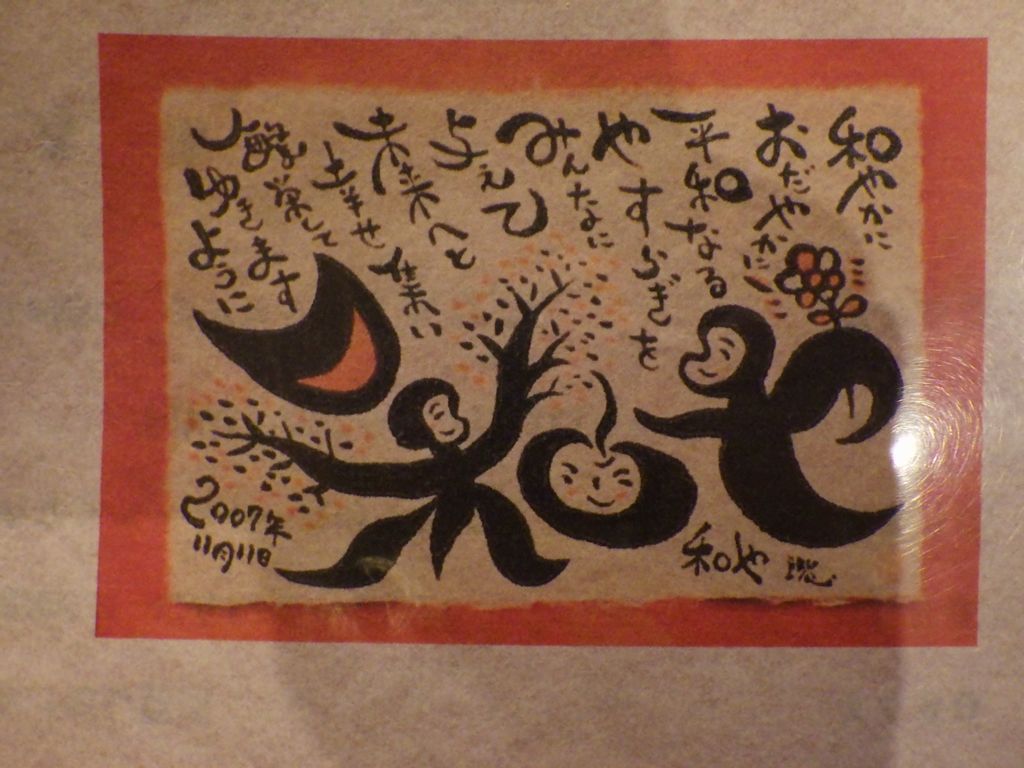 和やかに
おだやかに
平和なる
やすらぎを
みんなに
与えて
未来へと
幸せ
して
ゆきます
ように
和や
2007年
11月11日